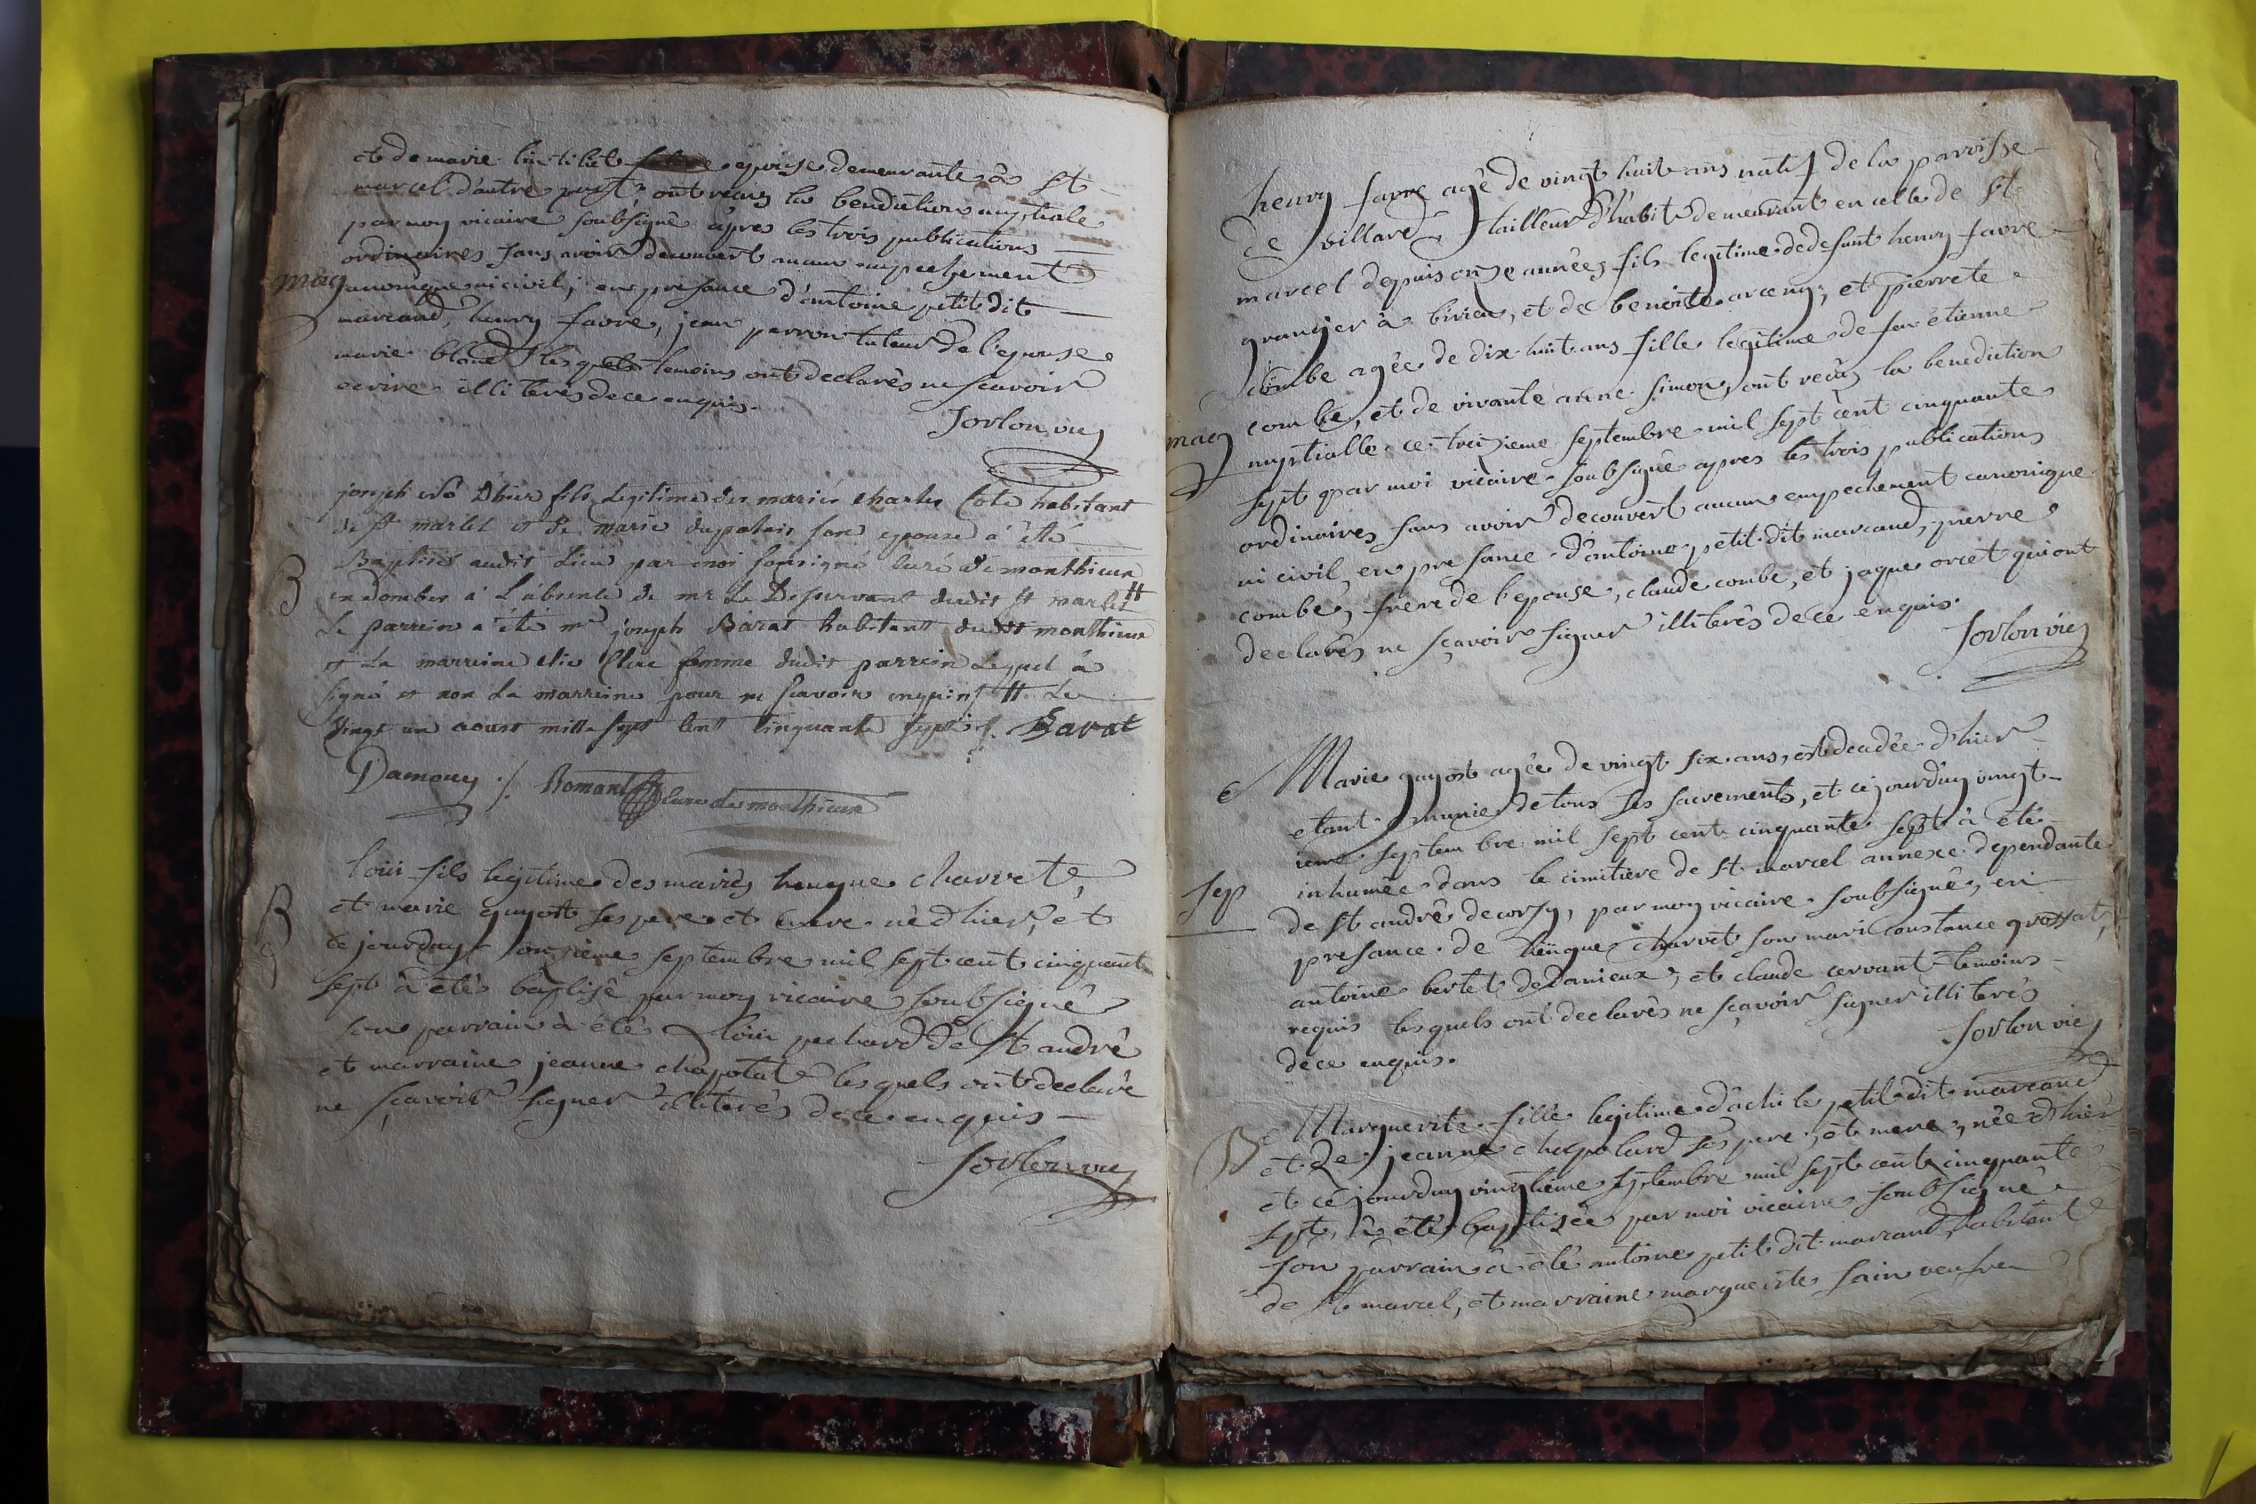 et de marie epouse demeurante à St
marcel d'autre part, ont reçus la benediction nuptiale
par moy vicaire soubsigné apres les trois publications
ordinaires sans avoir decouvert aucun empechement
mag
canonique ni civil, en presance d'antoine petit dit
marcand, henry favre, jean perron tuteur de l'epouse
marie blond lesquels temoins ont declarés ne scavoir
ecrire illiterés de ce enquis.
Sorlon vic
joseph né d'hier fils legitime des mariés charles Cote habitant
de St marcel et de marie dupalais son epouse à été
B
Baptisé audit Lieu par moi sousigné curé de monthieux
en dombes à l'absence de mr Le Desservant dudit St marcel #
Le parrein a été mr joseph Barat habitant dudit monthieux
et La marreine femme dudit parrein Lequel à
signé et non La marreine pour ne scavoir enquis # Le
vingt un aoust mille sept cent cinquante sept Barat
Damouy Romant curé de monthieux
loüi fils legitime des mariés hugue charvet
B
et marie guyot ses pere et mere né d'hier, et
ce jourduy onzieme septembre mil sept cent cinquante
sept à etés baptisé par moy vicaire soubsigné
son parrain à étés loüi pechard de St andré
et marraine jeanne chapolat lesquels ont declaré
ne sçavoir signer illiterés de ce enquis
Sorlon vic
henry favre agé de vingt huit ans natif de la paroisse
de villard tailleur d'habit demeurant en celle de St
marcel depuis onze années fils legitime de defunt henry favre
granger à birieu, et de benoite arceny, et pierrete
combe agée de dix huit ans fille legitime de feu etienne
combe, et de vivante anne simon, ont reçus la benediction
mag
nuptialle ce treizieme septembre mil sept cent cinquante
sept par moi vicaire soubsigné apres les trois publications
ordinaires sans avoir decouvert aucun empechement canonique
ni civil, en presance d'antoine petit dit marcand, pierre
combe, frere de l'epouse, claude combe, et jaque orcet qui ont
declarés ne sçavoir signer illiterés de ce enquis.
Sorlon vic
Marie guyot agée de vingt six ans, est decedée d'hier
etant munie de tous ses sacrements, et ce jourduy vingt
ieme septembre mil sept cent cinquante sept à eté
sep
inhumée dans le cimitiere de St marcel annexe dependante
de St andré decorsy, par moy vicaire soubsigné, en
presance de hugue charvet son mari constance grossat,
antoine bertet de danieux, et claude cervant temoins
requis lesquels ont declarés ne sçavoir signer illiterés
de ce enquis.
Sorlon vic
Marguerite fille legitime d'achile petit dit marcand
B
et de jeanne chapolard ses pere, et mere, née d'hier
et ce jourduy vingtieme septembre mil sept cent cinquante
sept, à étés baptisée par moi vicaire soubsigné
son parrain à été antoine petit dit marcand, habitant
de St marcel, et marraine marguerite